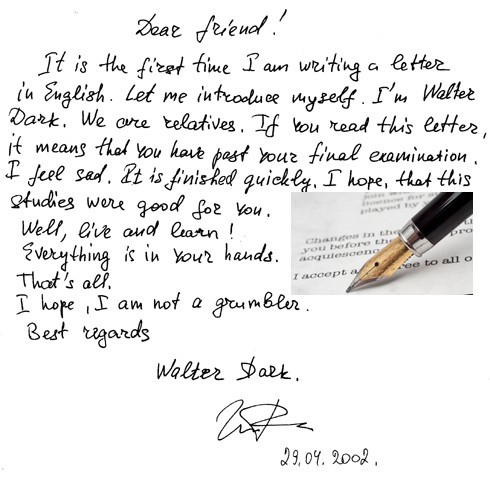 Dear friend!
It is the first time I am writing a letter
in English. Let me introduce myself. I'm Walter
Dark. We are relatives. If you read this letter,
it means that you have past your final examination.
I feel sad. It is finished quickly. I hope, that this
studies were good for you.
Well, live and learn!
Everything is in your hands.
That's all.
I hope, I am not a grumbler.
Best regards
Walter Dark.
29.04.2002.
join
licence for
played by
Changes in the
you before the
pro
acquiescenc
I accept a
ee to all o